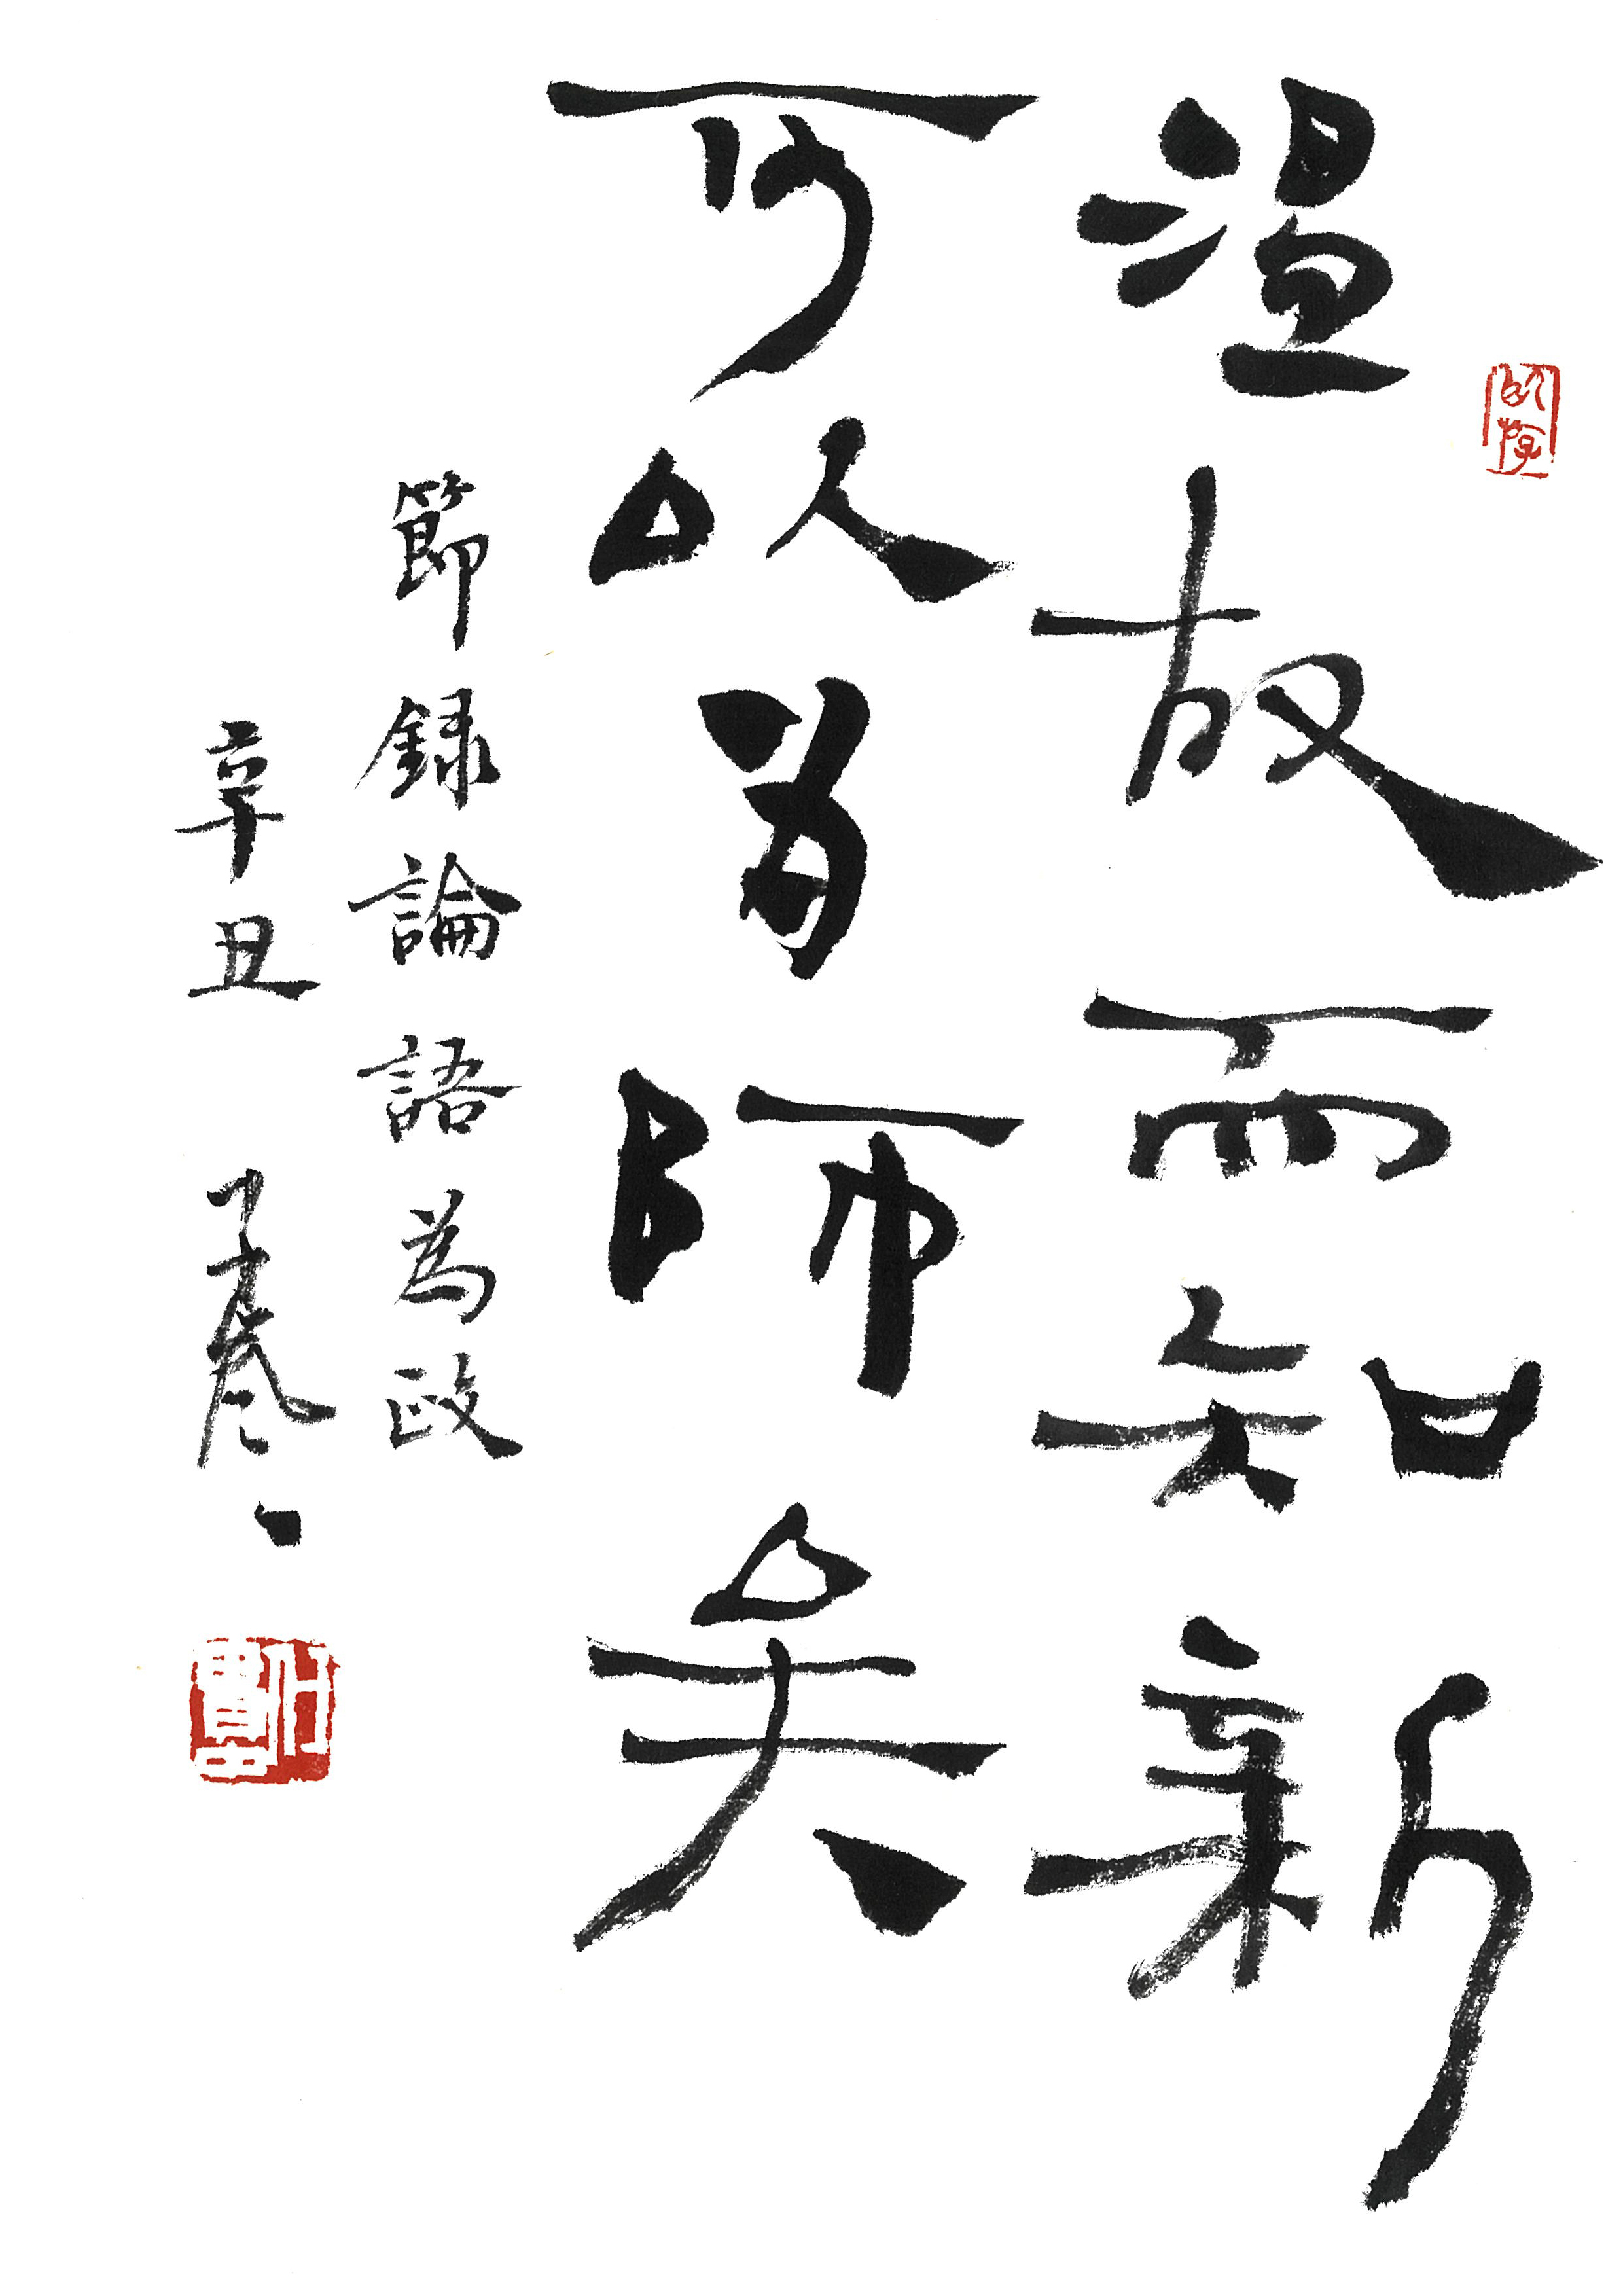 温故而知新
可以為師矣
節録論語為政
辛丑